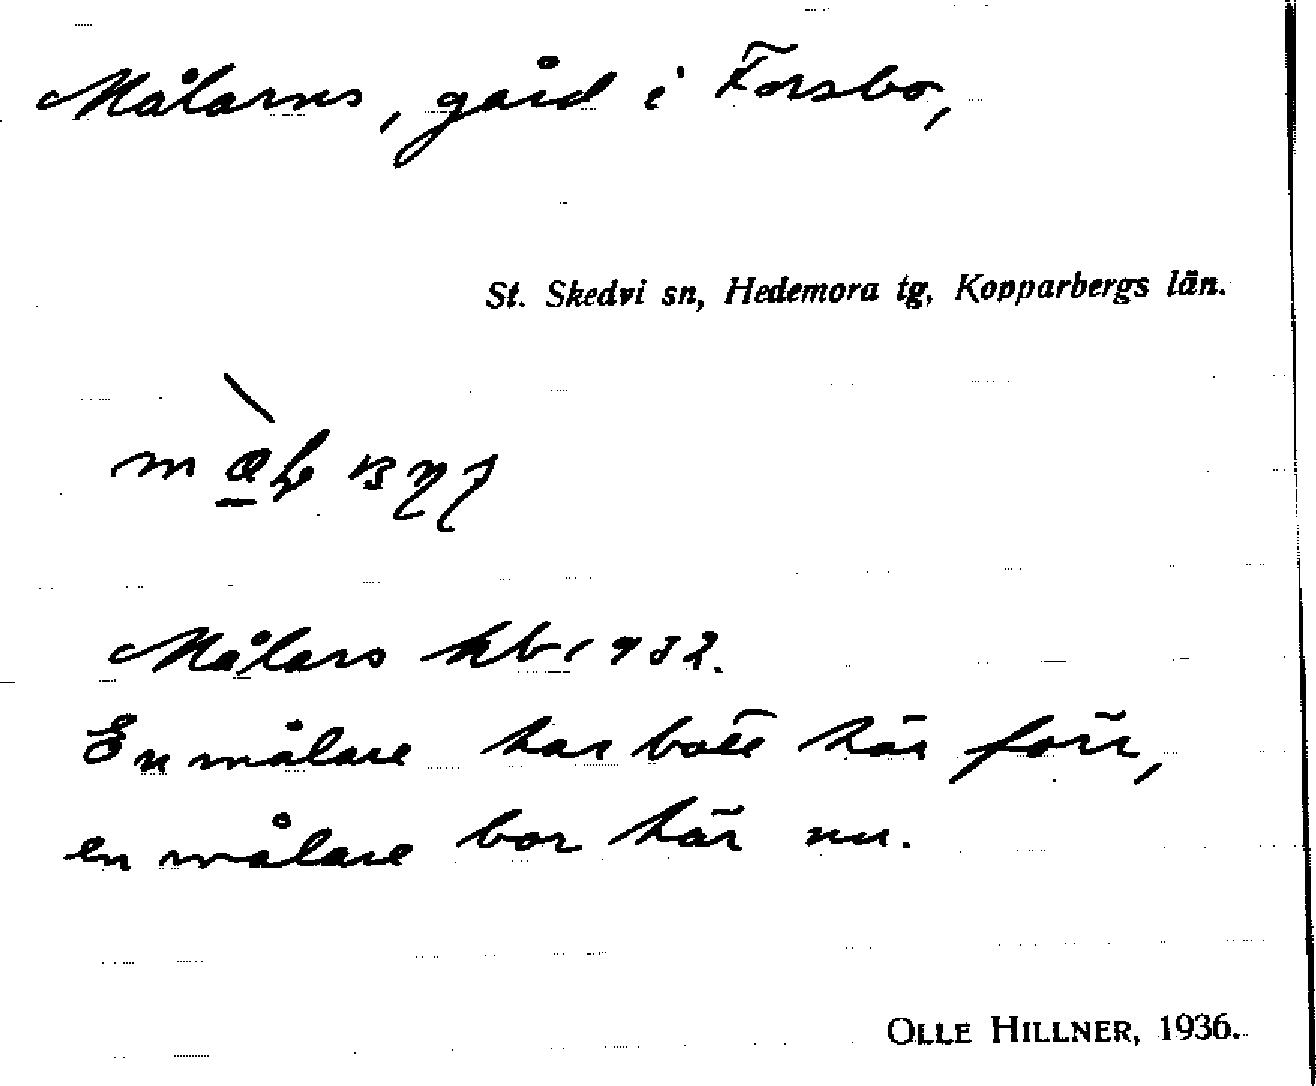 Målarns, gård i Forsbo,
St. Skedvi sn, Hedemora tg, Kopparbergs län.
Målars kb 1932.
En målare har bott här förr,
en målare bor här nu.
OLLE HILLNER, 1936.